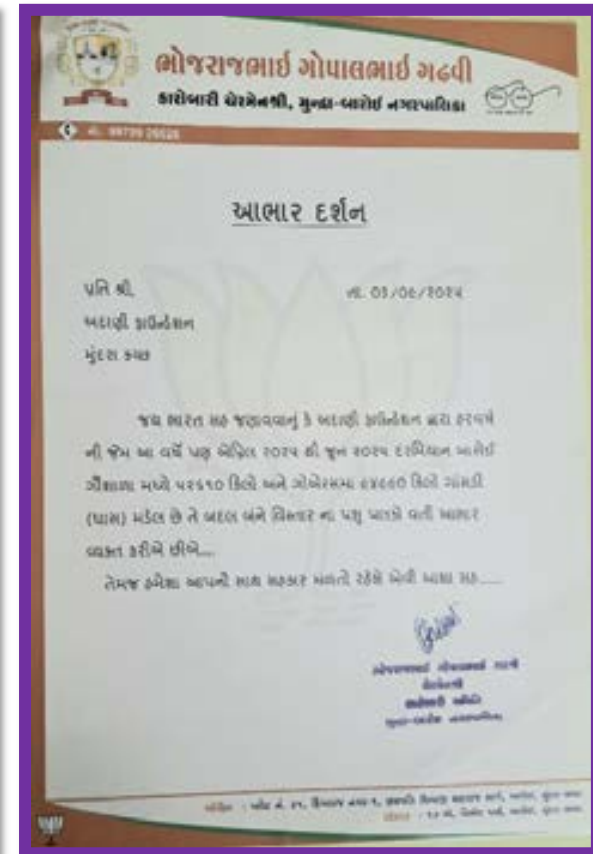 ભોજરાજભાઈ ગોપાલભાઈ ગઢવી
કારોબારી ચેરમેનશ્રી, મુન્દ્રા-બારોઈ નગરપાલિકા
આભાર દર્શન
પ્રતિ શ્રી,
તા. 03/0૯/૨૦૨૫
અદાણી ફાઉન્ડેશન
મુંદરા કચ્છ
જય ભારત સહ જણાવવાનું કે અદાણી ફાઉન્ડેશન દ્વારા દરવર્ષે
ની જેમ આ વર્ષે પણ એપ્રિલ ૨૦૨૫ થી જૂન ૨૦૨૫ દરમિયાન બારોઈ
ગૌશાળા મધ્યે કિલો અને કિલો ગાંસડી
(ઘાસ) મળેલ છે તે બદલ બંને વિસ્તાર ના પશુ પાલકો વતી આભાર
વ્યક્ત કરીએ છીએ...
તેમજ હંમેશા આપનો સાથ સહકાર મળતો રહેશે એવી આશા સહ......
ભોજરાજભાઈ ગોપાલભાઈ ગઢવી
ચેરમેનશ્રી
કારોબારી સમિતિ
મુન્દ્રા-બારોઈ નગરપાલિકા